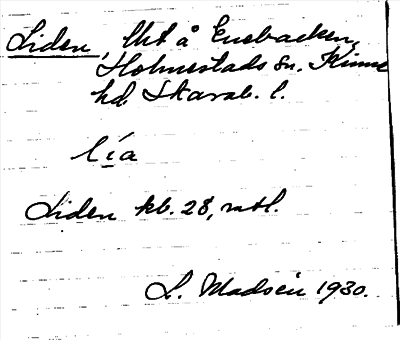 Liden, lht å Enebacken,
Holmestads sn. Kinne
hd. Skarab. l.
lía
Liden kb. 28, mtl.
L. Madsén 1930.